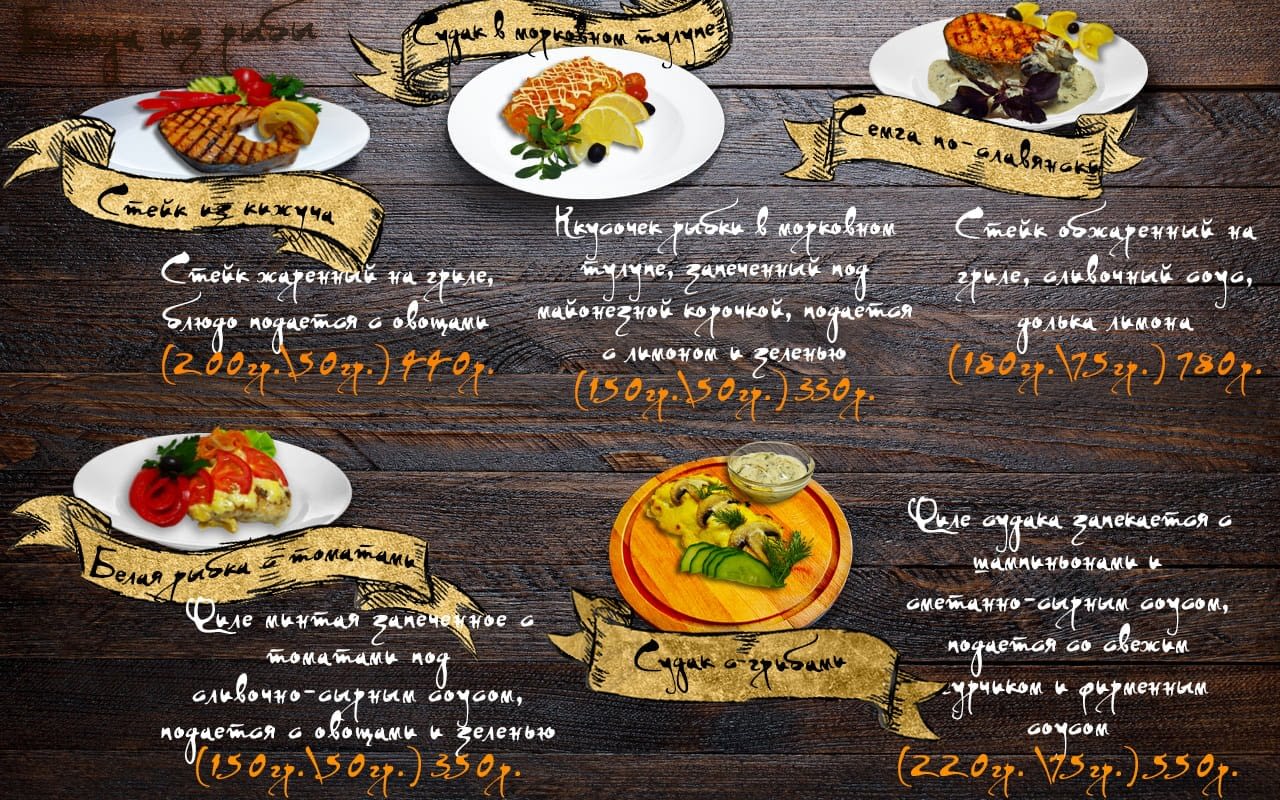 из рыбы
Судак в морковном тулупе
Семга по-славянски
Стейк из кижуча
Стейк жаренный на гриле,
блюдо подается с овощами
(200гр.\50гр.) 440р.
Ккусочек рыбки в морковном
тулупе, запеченный под
майонезной корочкой, подается
с лимоном и зеленью
(150гр.\50гр.) 330р.
Стейк обжаренный на
гриле, сливочный соус,
долька лимона
(180гр.\75гр.) 780р.
Белая рыбка с томатами
Филе минтая запеченное с
томатами под
сливочно-сырным соусом,
подается с овощами и зеленью
(150гр.\50гр.) 350р.
Судак с грибами
Филе судака запекается с
шампиньонами и
сметанно-сырным соусом,
подается со свежим
гурчиком и фирменным
соусом
(220гр. \75гр.) 550р.